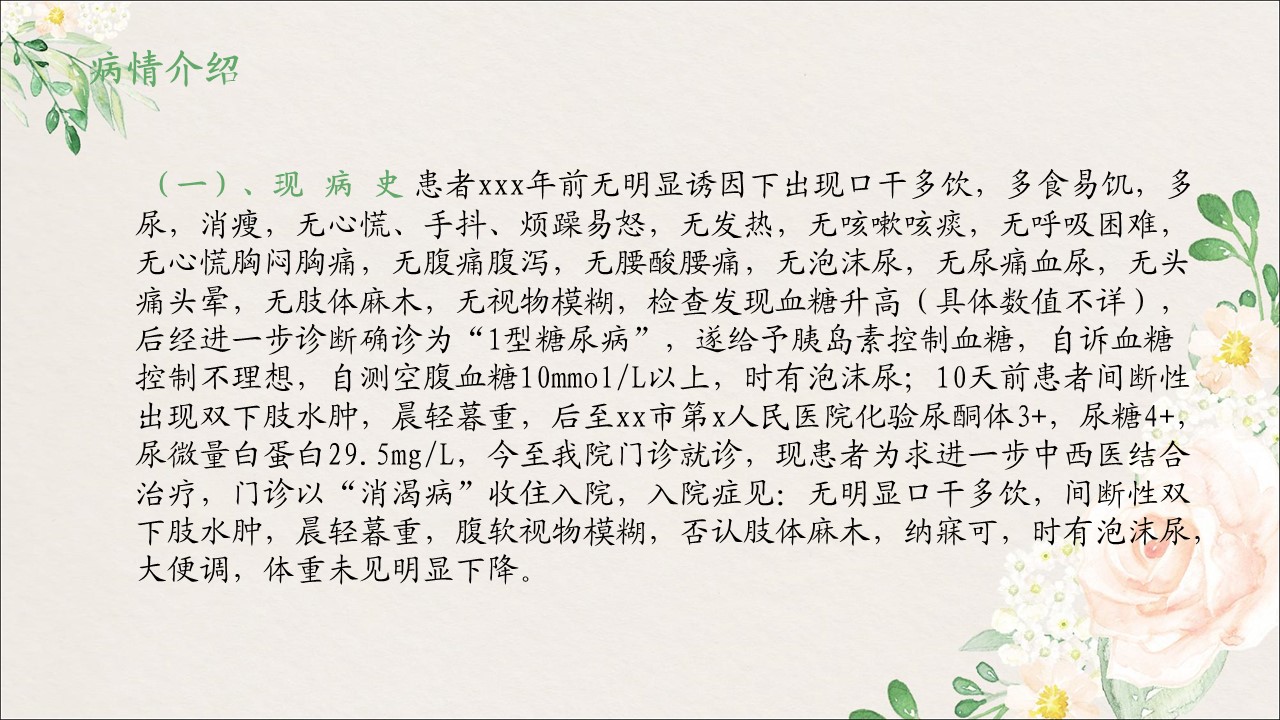 病情介绍
（一）、现 病 史 患者xxx年前无明显诱因下出现口干多饮，多食易饥，多
尿，消瘦，无心慌、手抖、烦躁易怒，无发热，无咳嗽咳痰，无呼吸困难，
无心慌胸闷胸痛，无腹痛腹泻，无腰酸腰痛，无泡沫尿，无尿痛血尿，无头
痛头晕，无肢体麻木，无视物模糊，检查发现血糖升高（具体数值不详），
后经进一步诊断确诊为“1型糖尿病”，遂给予胰岛素控制血糖，自诉血糖
控制不理想，自测空腹血糖10mmol/L以上，时有泡沫尿；10天前患者间断性
出现双下肢水肿，晨轻暮重，后至xx市第x人民医院化验尿酮体3+，尿糖4+，
尿微量白蛋白29.5mg/L，今至我院门诊就诊，现患者为求进一步中西医结合
治疗，门诊以“消渴病”收住入院，入院症见：无明显口干多饮，间断性双
下肢水肿，晨轻暮重，腹软视物模糊，否认肢体麻木，纳寐可，时有泡沫尿，
大便调，体重未见明显下降。